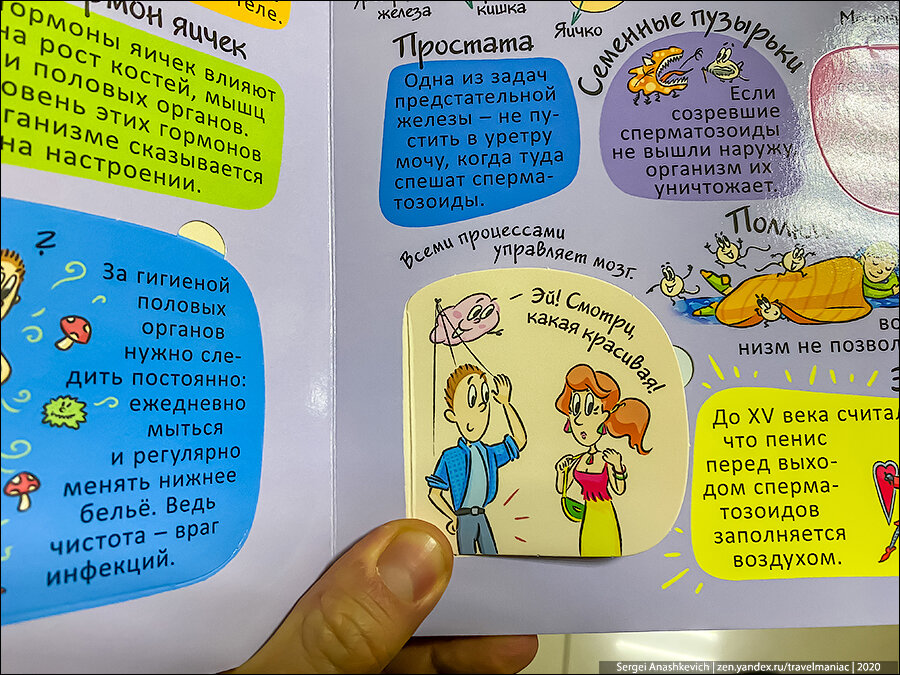 теле.
ормон яичек
ормоны яичек влияют
на рост костей, мышц
и половых органов.
овень этих гормонов
ганизме сказывается
на настроении.
?
За гигиеной
половых
органов
нужно сле-
дить постоянно:
ежедневно
мыться
и регулярно
менять нижнее
бельё. Ведь
чистота – враг
инфекций.
железа
кишка
Яичко
Простата
Одна из задач
предстательной
железы – не пу-
стить в уретру
мочу, когда туда
спешат сперма-
тозоиды.
Семенные пузырьки
Если
созревшие
сперматозоиды
не вышли наружу,
организм их
уничтожает.
Всеми процессами
управляет мозг.
– Эй! Смотри,
какая красивая!
низм не позвол
До XV века считал
что пенис
перед выхо-
дом сперма-
тозоидов
заполняется
воздухом.
Sergei Anashkevich | zen.yandex.ru/travelmaniac | 2020